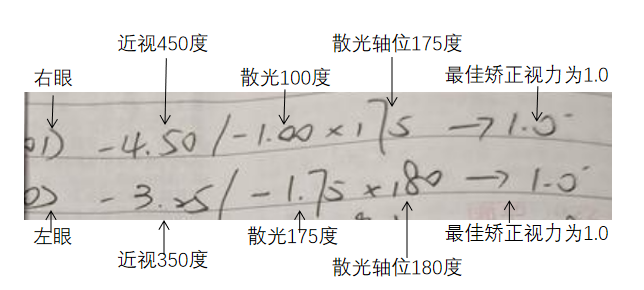 近视450度 散光轴位175度
右眼 散光100度 最佳矫正视力为1.0
01) -4.50 / -1.00 × 175 → 1.0-
0) -3.25 / -1.75 × 180 → 1.0-
左眼 散光175度 最佳矫正视力为1.0
近视350度 散光轴位180度